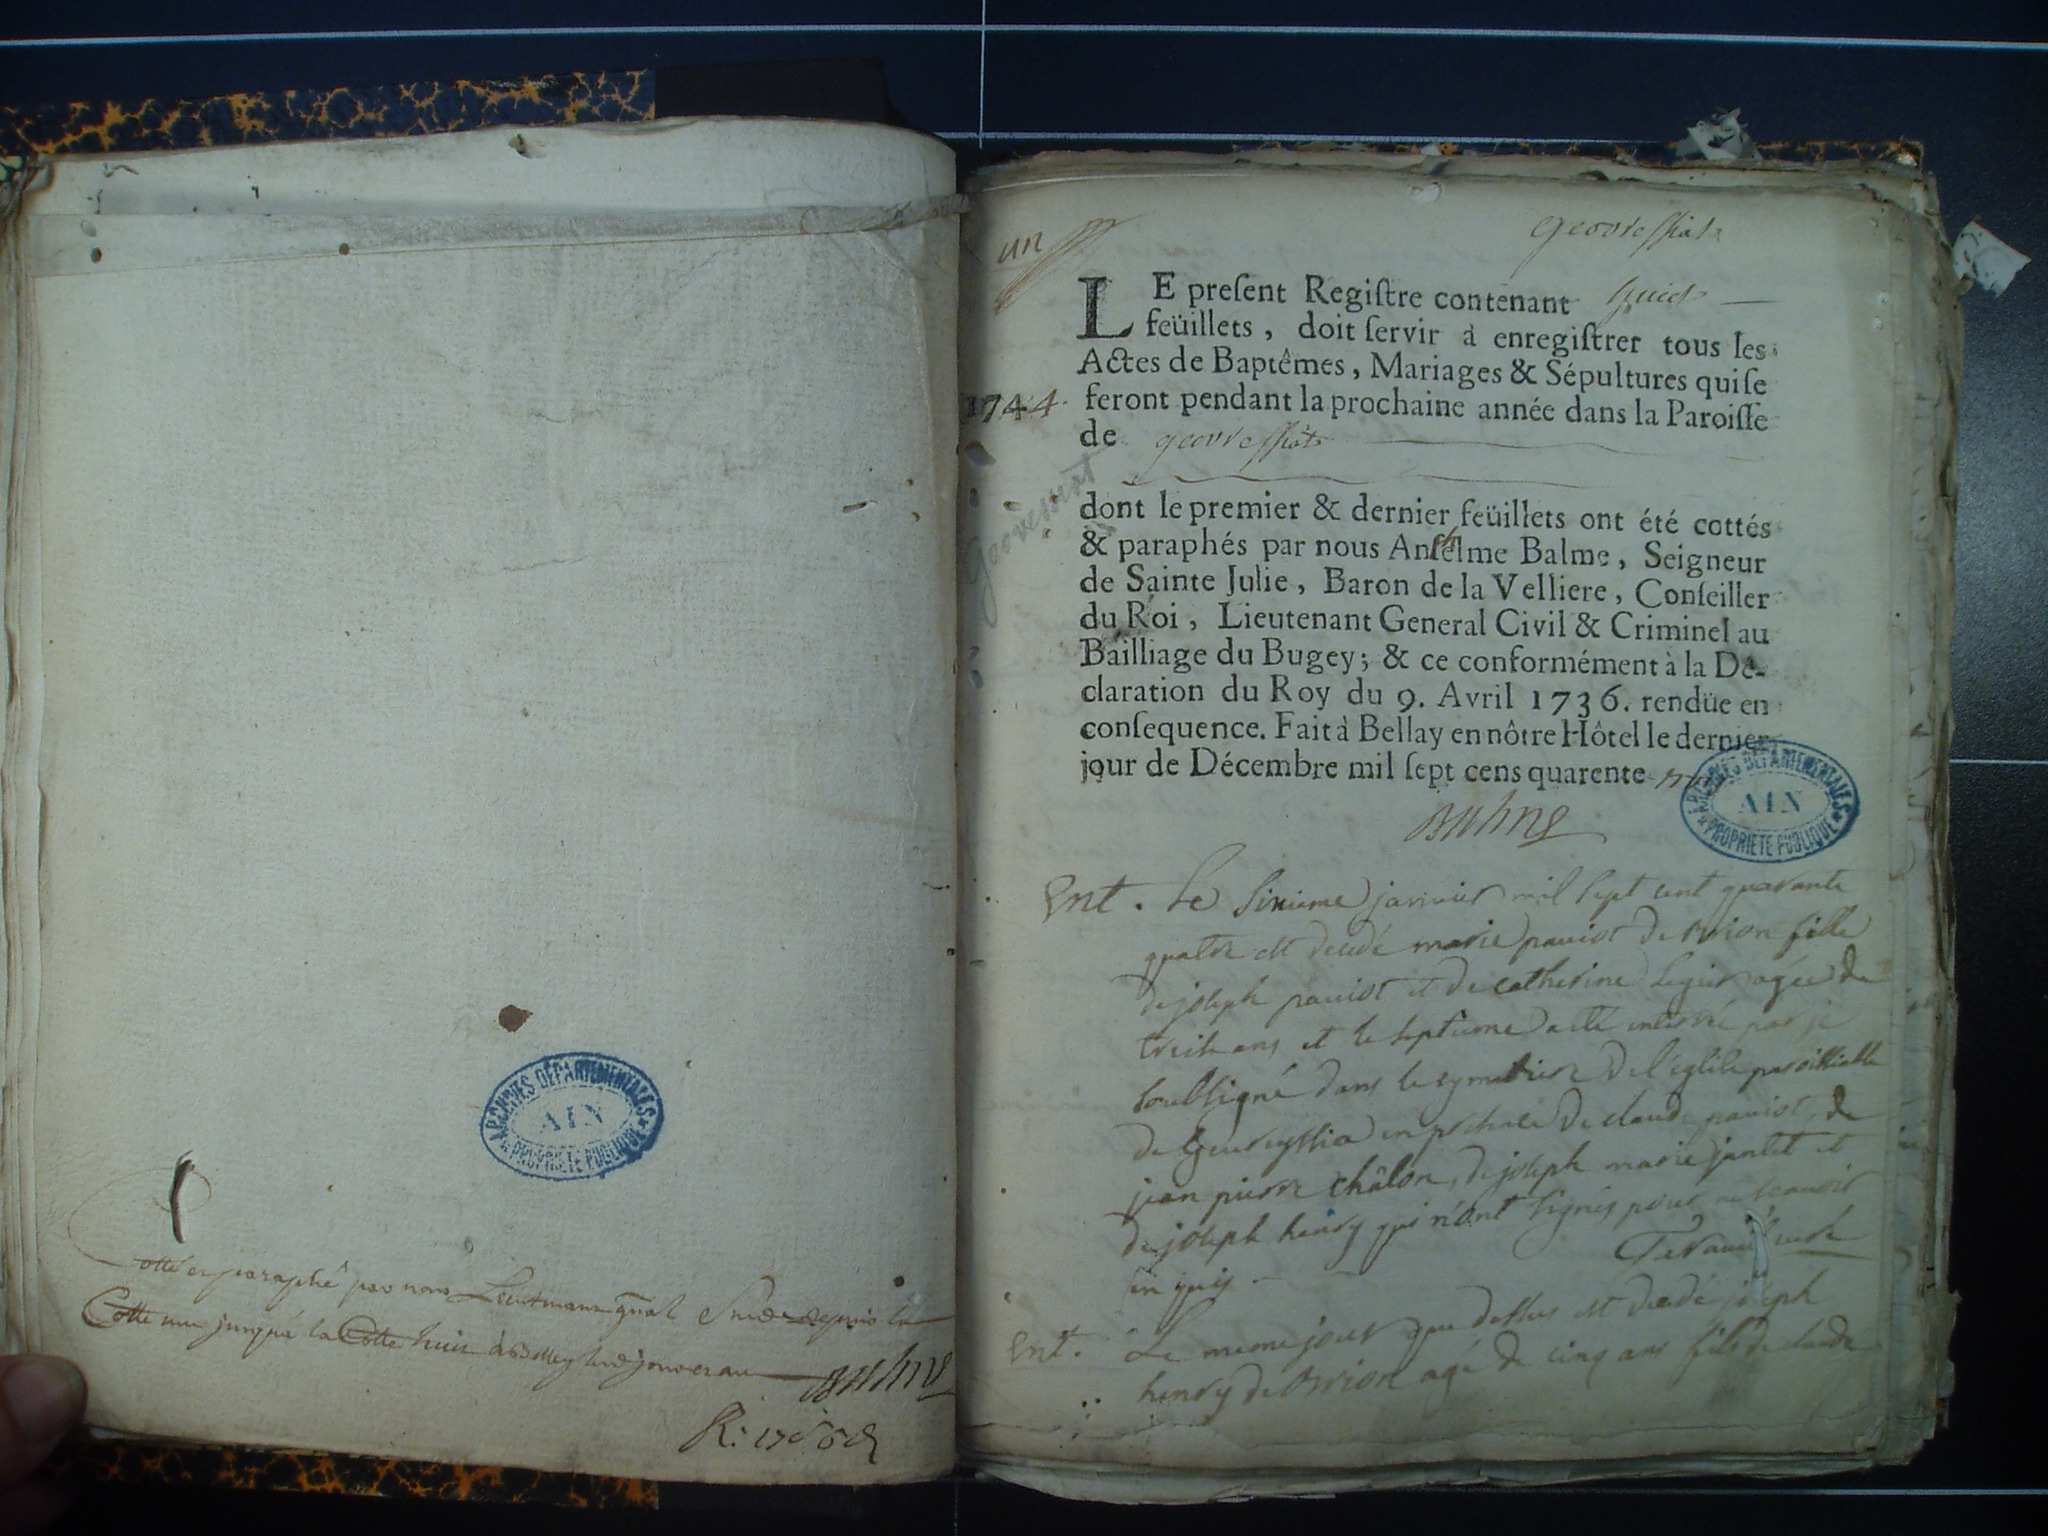 ARCHIVES DÉPARTEMENTALES
AIN
PROPRIÉTÉ PUBLIQUE
Cotté et paraphé par nous Lieutenant gñal
Cotte une jusqué la Cotte huit à Belley
Balme
un
geovressiat
LE preſent Regiſtre contenant huict
feüillets, doit ſervir à enregiſtrer tous les
Actes de Baptêmes, Mariages & Sépultures qui ſe
1744. feront pendant la prochaine année dans la Paroiſſe
de geovressiat
Geovressiat
dont le premier & dernier feüillets ont été cottés
& paraphés par nous Anſelme Balme, Seigneur
de Sainte Julie, Baron de la Velliere, Conſeiller
du Roi, Lieutenant General Civil & Criminel au
Bailliage du Bugey; & ce conformément à la De-
claration du Roy du 9. Avril 1736. rendüe en
conſequence. Fait à Bellay en nôtre Hôtel le dernier
jour de Décembre mil ſept cens quarente
ARCHIVES DÉPARTEMENTALES
AIN
PROPRIÉTÉ PUBLIQUE
Balme
Ent. Le sixieme janvier mil sept cent quarante
quatre est decedé marie paviot de Brion fille
de joseph paviot et de catherine agée de
treise ans et le septieme a été enterrée par je
soussigné dans le cymetiere de l'église paroissialle
de en presence de claude paviot, de
jean pierre châlon, de joseph marie jantet et
de joseph henry qui n'ont signés pour ne scavoir
Ent. Le meme jour que dessus est decedé joseph
henry de Brion agé de cinq ans fils de claude